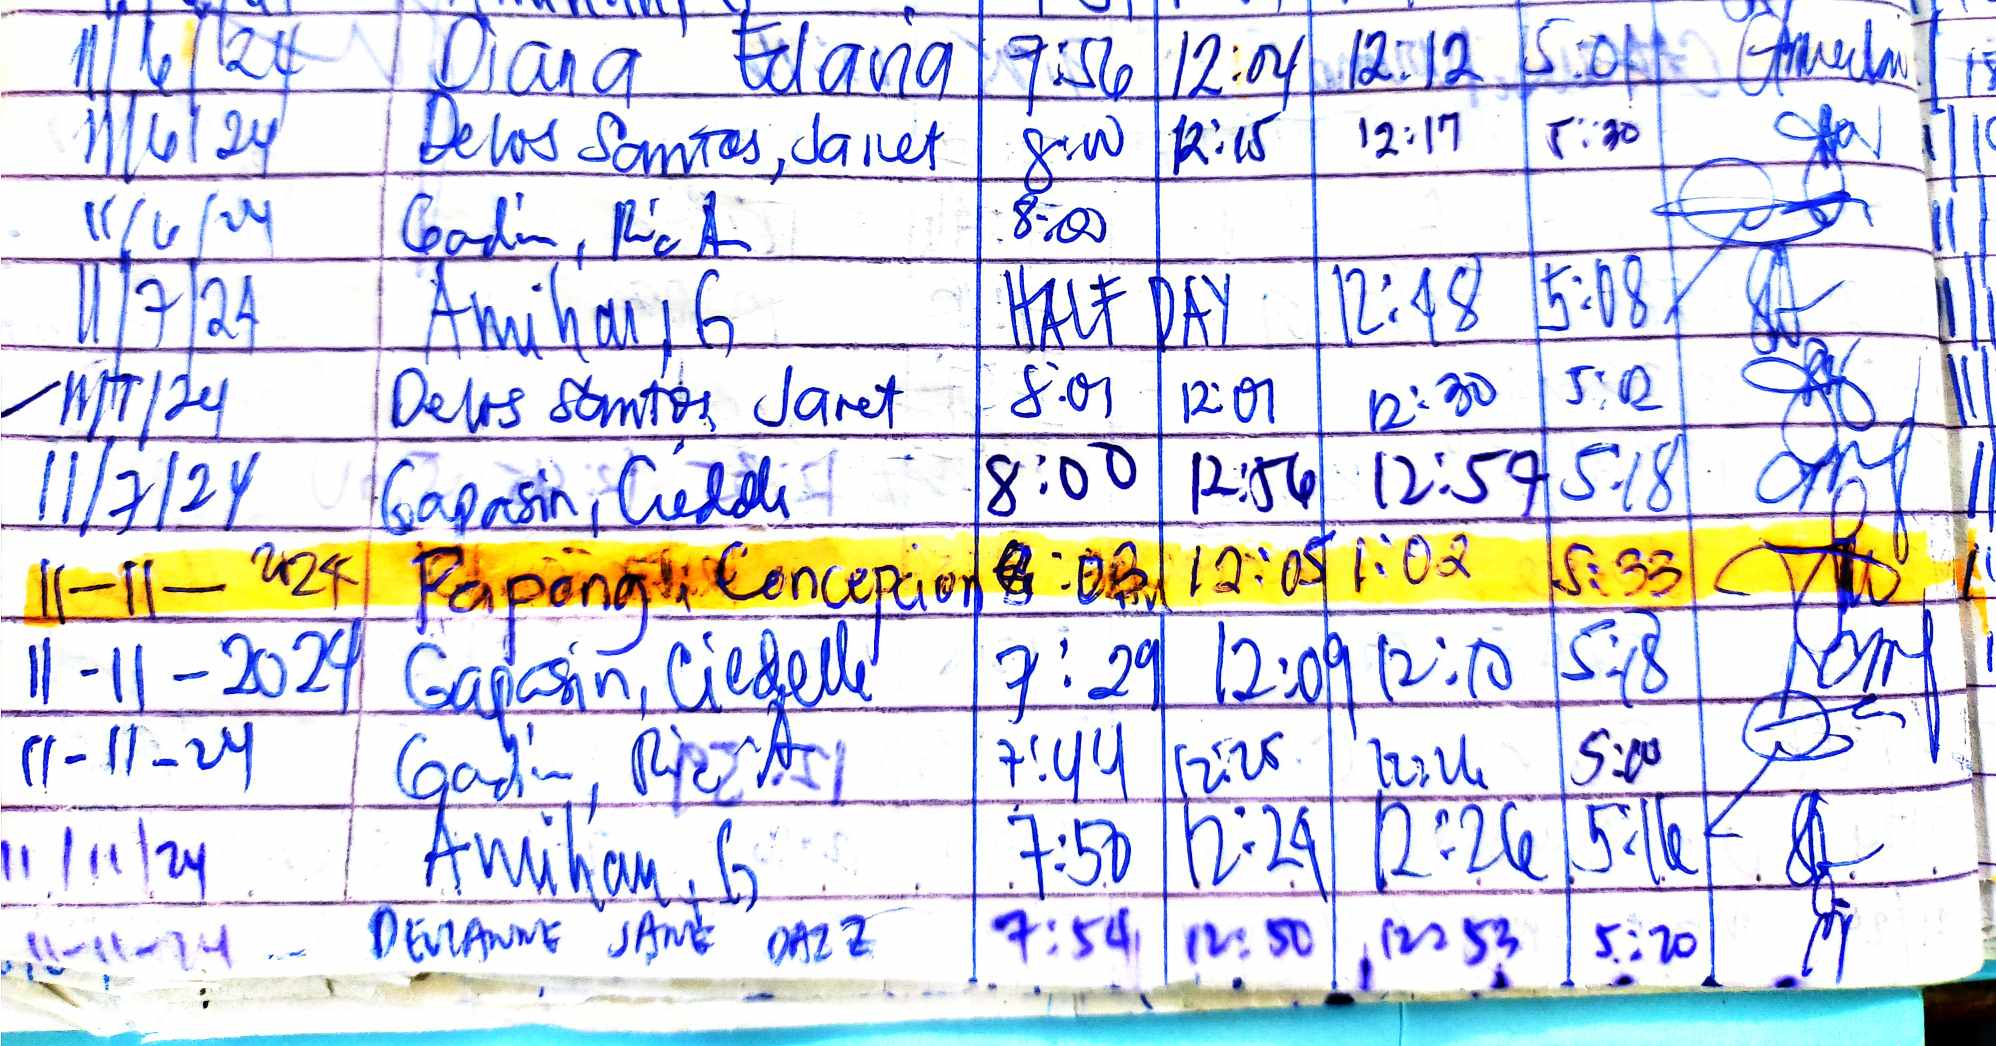 11/6/24 Diana Edavia 7:56 12:04 12:12 5:01
11/6/24 Delos Santos, Janet 8:00 12:15 12:17 5:30
11/6/24 Gadin, Ric A 8:00
11/7/24 Amihan, G HALF DAY 12:48 5:08
11/7/24 Delos Santos, Janet 8:01 12:01 12:30 5:12
11/7/24 Gapasin, 8:00 12:56 12:57 5:18
11-11-2024 Papong, Concepcion 12:05 1:02 5:33
11-11-2024 Gapasin, Ciedelle 7:29 12:09 12:10 5:18
11-11-24 Gadin, Ric A 7:44 12:25 12:26 5:00
11/11/24 Amihan, G 7:50 12:24 12:26 5:16
11-11-24 JANE 7:54 12:50 12:53 5:20